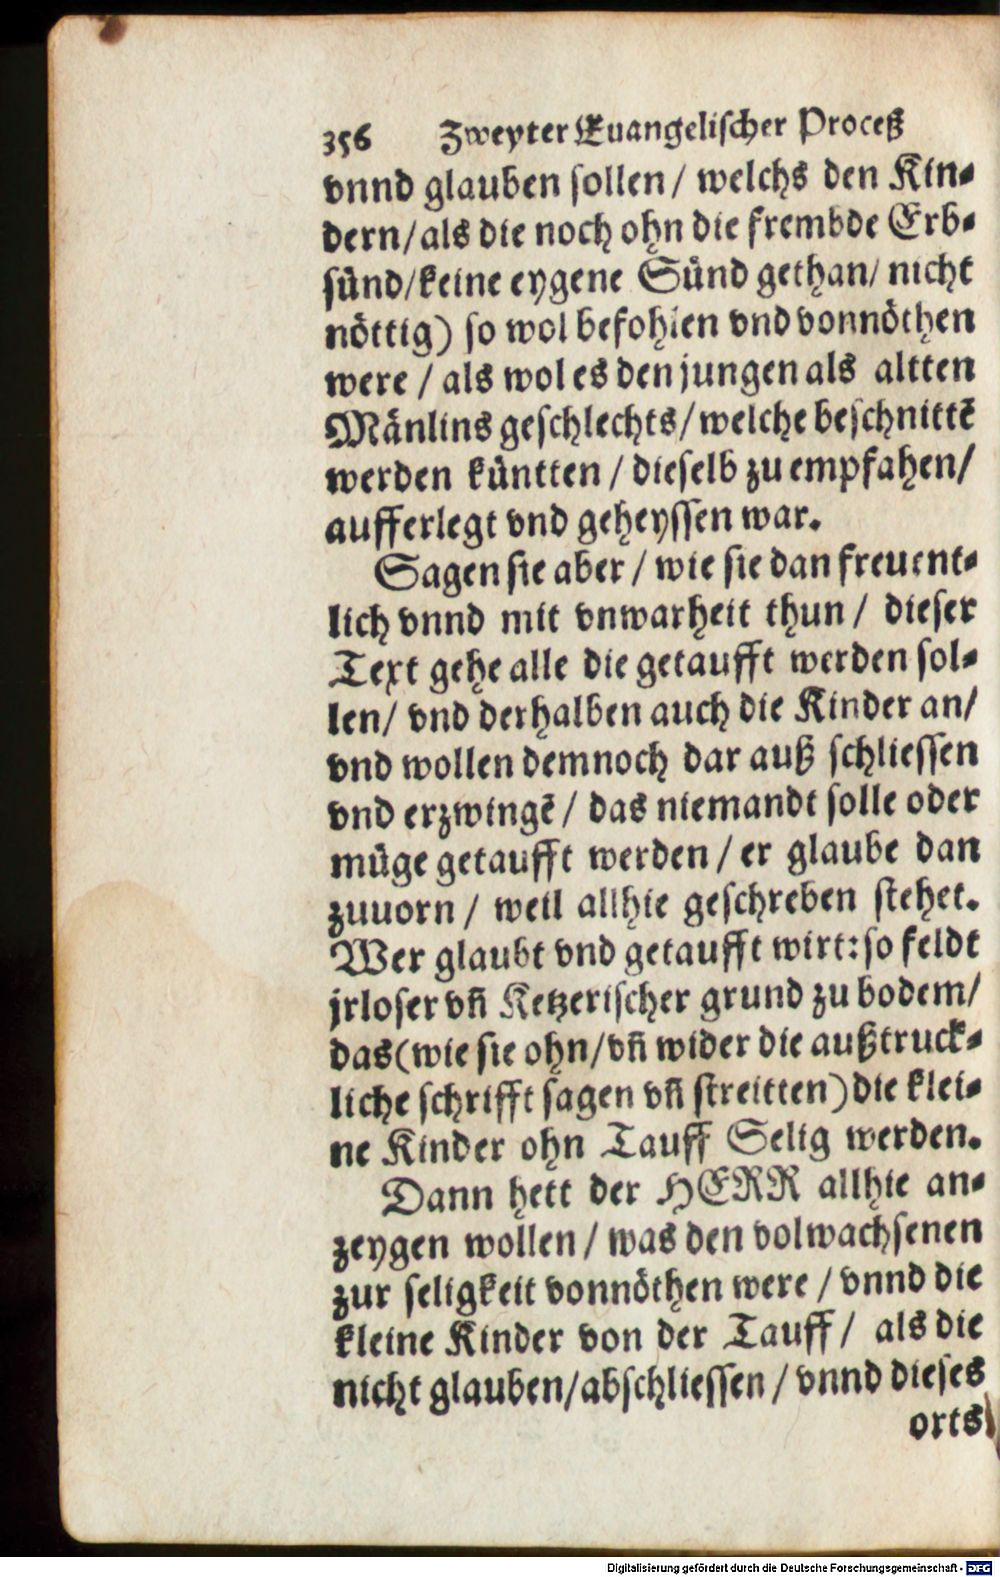 356 Zweyter Euangelischer Proceß
vnnd glauben sollen / welchs den Kin-
dern/als die noch ohn die frembde Erb-
sünd/keine eygene Sünd gethan/ nicht
nöttig) so wol befohlen vnd vonnöthen
were / als wol es den jungen als altten
Mänlins geschlechts/welche beschnittē
werden küntten / dieselb zu empfahen/
aufferlegt vnd geheyssen war.
Sagen sie aber / wie sie dan freuent-
lich vnnd mit vnwarheit thun / dieser
Text gehe alle die getaufft werden sol-
len/ vnd derhalben auch die Kinder an/
vnd wollen demnoch dar auß schliessen
vnd erzwingē / das niemandt solle oder
müge getaufft werden / er glaube dan
zuuorn / weil allhie geschreben stehet.
Wer glaubt vnd getaufft wirt: so feldt
jrloser vñ Ketzerischer grund zu bodem/
das(wie sie ohn/vñ wider die außtruck-
liche schrifft sagen vñ streitten)die klei-
ne Kinder ohn Tauff Selig werden.
Dann hett der HERR allhie an-
zeygen wollen / was den volwachsenen
zur seligkeit vonnöthen were / vnnd die
kleine Kinder von der Tauff / als die
nicht glauben/abschliessen / vnnd dieses
orts
Digitalisierung gefördert durch die Deutsche Forschungsgemeinschaft - DFG